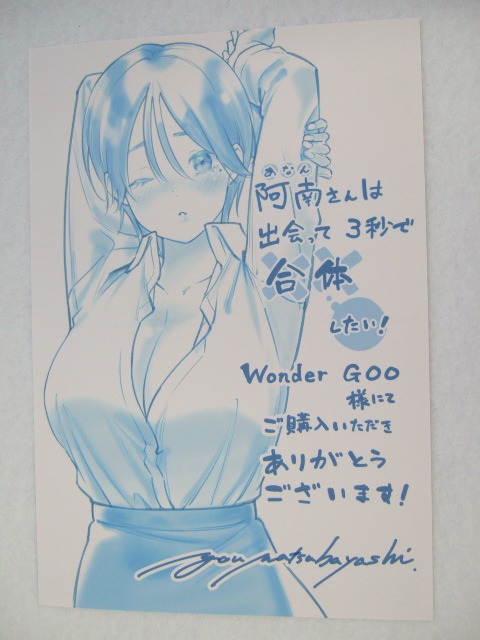 あなん
阿南さんは
出会って3秒で
合体
したい!
Wonder GOO
様にて
ご購入いただき
ありがとう
ございます!
you matsubayashi.